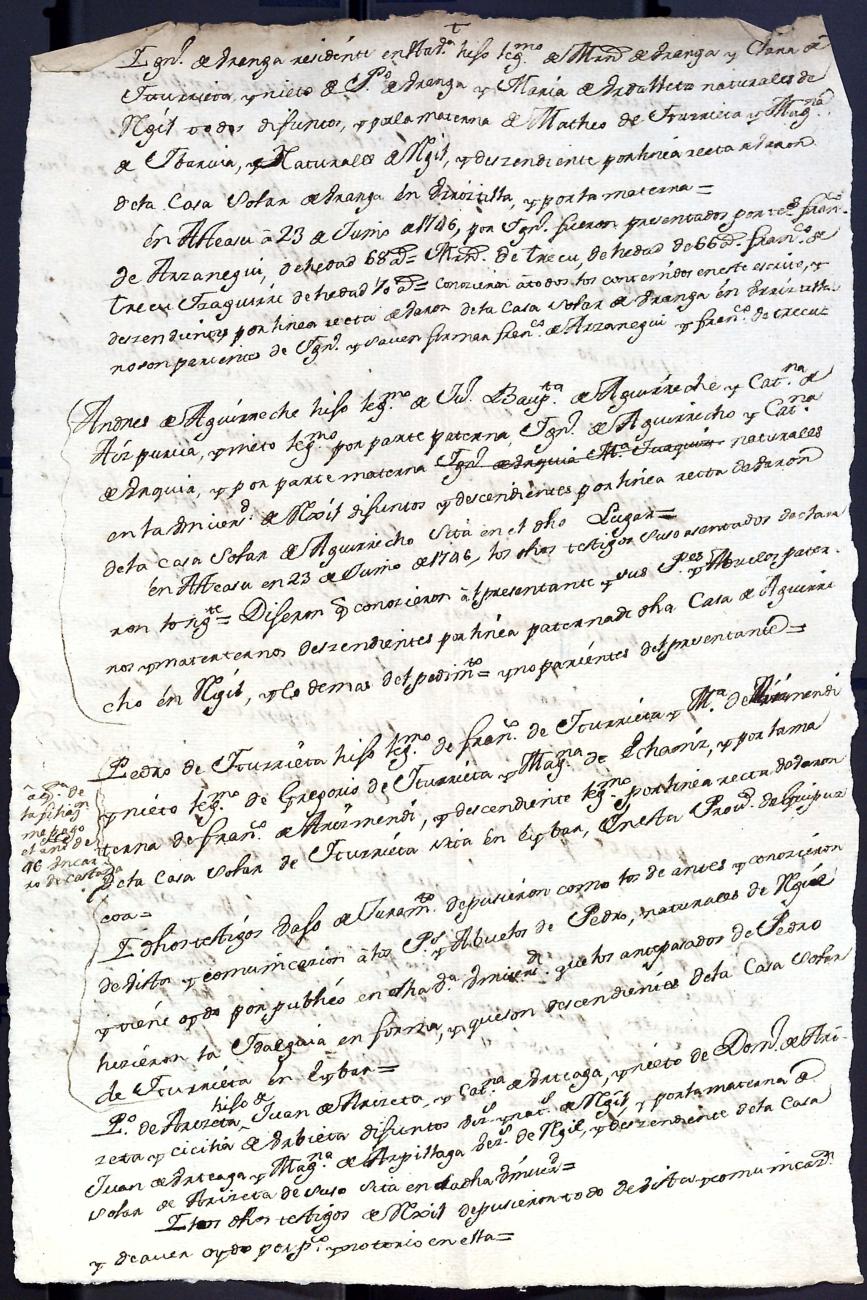 †
Ygn.º de Dranga residente en Had.ª hiso leg.mo de Mrn. de Dranga y Clara de
Yturrieta, y nieto de P.º de Dranga y Maria de naturales de
Ngil todos difuntos, y por la materna de Matheo de Yturrieta y Mag.na
de Ybarvia, y Naturales de Ngil, y deszendiente por linea recta de Baron
dela Casa Solar de Dranga en y por la materna =
En Ateasu â 23 de Junio de 1746, por Ygn.º fueron presentados por tes.s Fran.co
de Arzanegui, de hedad 68 a.s = Mrn. de Trecu, de hedad de 66 a.s Fran.co de
Trecu Yzaguirre de hedad 70 a.s = conozieron â todos los contenidos en este escrito, y
deszendientes por linea recta de Baron dela Casa Solar de Dranga en
no son parientes de Ygn.º y saven firmar Fran.co de Arzanegui y Fran.co de Trecu =
Andres de Aguirreche hiso leg.mo de Ju.º Baup.ta de Aguirreche y Cat.na de
Aizpurua, y nieto leg.mo por parte paterna, Ygn.º de Aguirrecho y Cat.na
de Draquia, y por parte materna Ygn.º de Draquia naturales
en la Univers.d de Nxil difuntos y descendientes por linea recta de Baron
dela Casa Solar de Aguirrecho sita en el dho Lugar =
En Ateasu en 23 de Junio de 1746, los dhos testigos suso asentados declara
ron lo sig.te = Diseron q conozieron âl presentante y sus P.es y Abuelos pater-
nos y materternos deszendientes por linea paterna de dha Casa de Aguirre
cho en Ngil, y lo demas del pedim.to = y no parientes del presentante =
Pedro de Yturrieta hiso leg.mo de Fran.co de Yturrieta y M.ª de Arizmendi
y nieto leg.mo de Gregorio de Yturrieta y Mag.na de Echaniz, y por la ma
terna de Fran.co de Arizmendi, y descendiente leg.mo por linea recta de Baron
dela Casa Solar de Yturrieta sita en Eybar, en esta Prov.a de Guipuz
coa =
â q.ta de
la filiaz.n
me pago
el año de
46 en car
ro de castaña
Y dhos testigos baso de Juram.to depusieron como los de antes y conozieron
de vista y comunicazion â los P.s y Abuelos de Pedro, naturales de Nguil
y tiene oydo por publico en dha d.ª Univers.d que los antepasados de Pedro
hizieron la Ydalguia en forma, y que son descendientes dela Casa Solar
de Yturrieta en Eybar =
P.º de Arizeta hiso de Juan de Arizeta, y Cat.na de Arteaga, y nieto de Dom.º de Ari-
zeta y Cicilia de Arbieta difuntos vez.s y nat.s de Ngil y por la materna de
Juan de Arteaga y Mag.na de Arpillaga vez.s de Ngil, y deszendiente dela Casa
Solar de Arizeta de suso sita en la dha Univer.d =
Y los dhos testigos de Nxil depusieron todo de vista y comunicaz.n
y de aver oydo por p.co y notorio en ella =